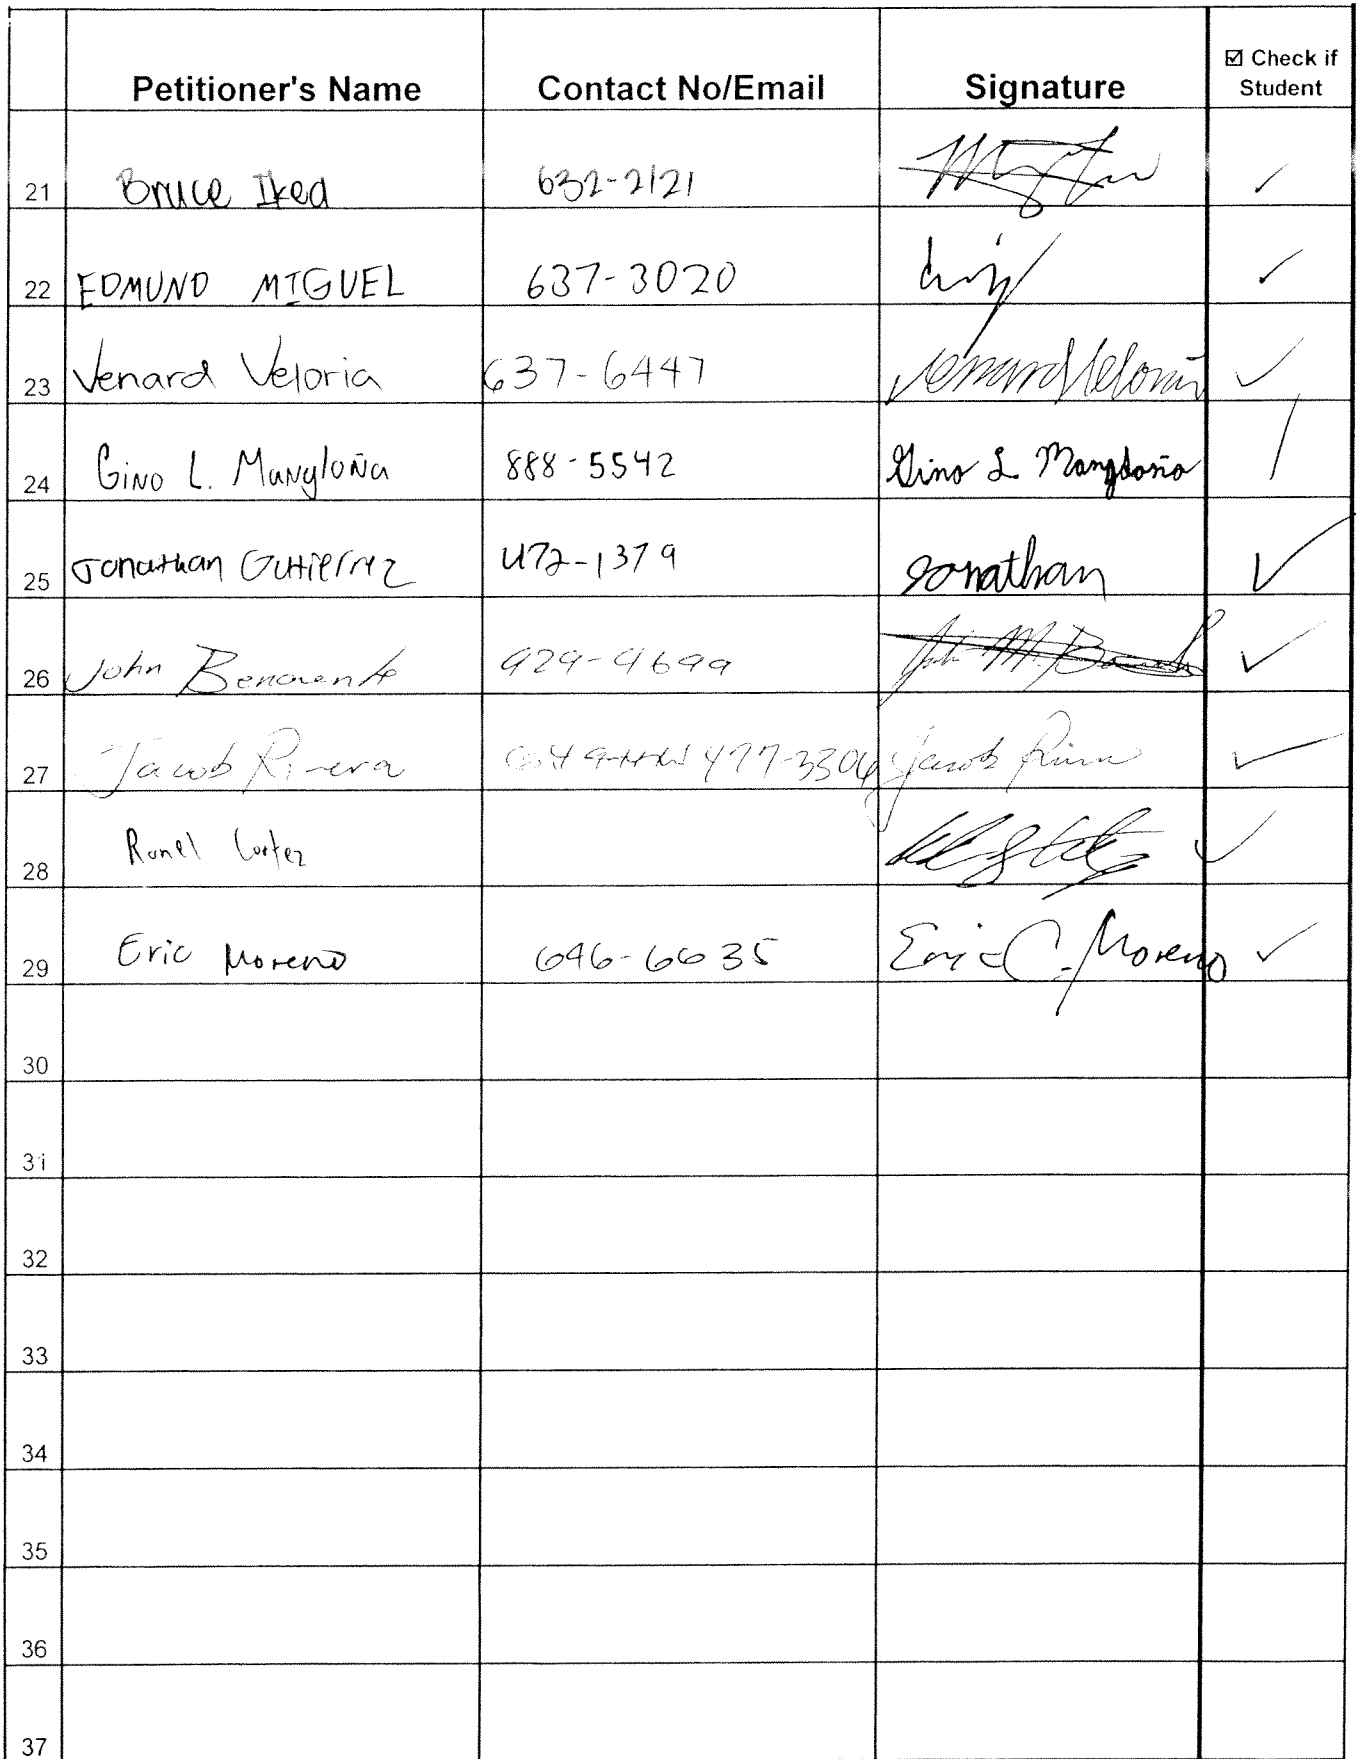 Petitioner's Name Contact No/Email Signature ☑ Check if Student
21 Bruce Iked 632-2121 ✓
22 EDMUND MIGUEL 637-3020 ✓
23 Venard Veloria 637-6447 Venard Veloria ✓
24 Gino L. Mangloña 888-5542 Gino L Mangloña /
25 Jonathan Gutierrez 472-1379 Jonathan ✓
26 John Benavente 929-9699 ✓
27 Jacob Rivera 477-3306 Jacob Rivera ✓
28 Ronel Cortez ✓
29 Eric Moreno 646-6635 Eric C. Moreno ✓
30
31
32
33
34
35
36
37